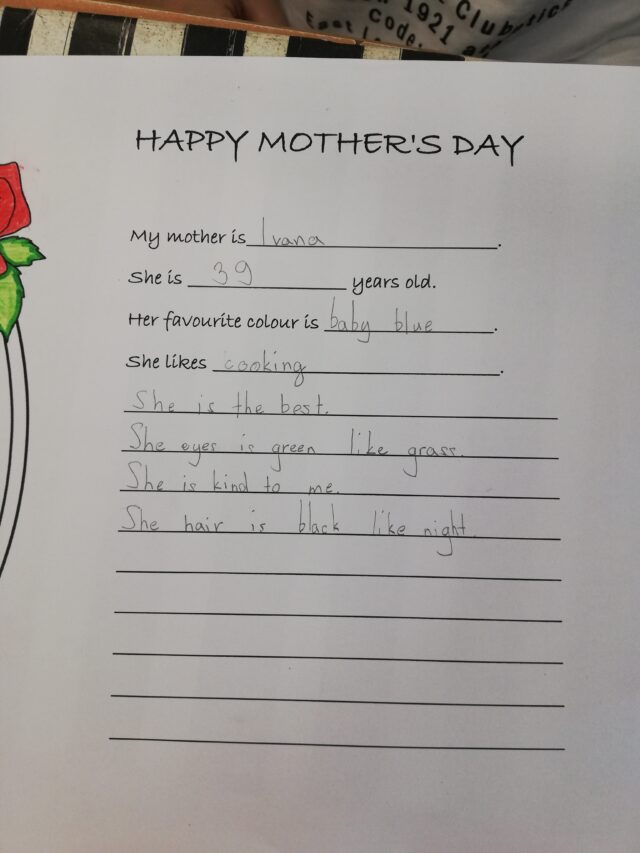 1921
Clubtics
Code.
East
HAPPY MOTHER'S DAY
My mother is Ivana.
She is 39 years old.
Her favourite colour is baby blue.
She likes cooking.
She is the best.
She eyes is green like grass.
She is kind to me.
She hair is black like night.